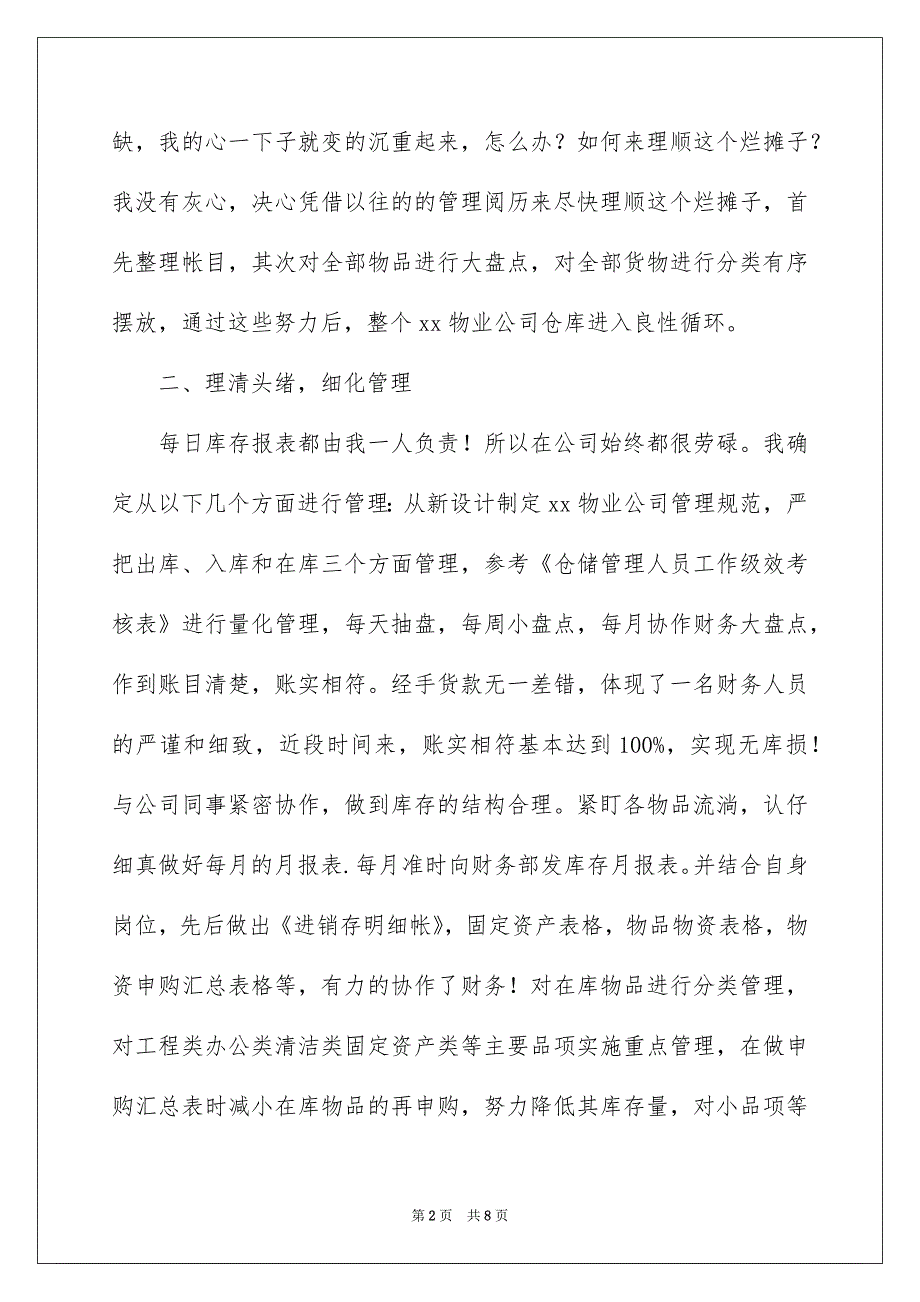 缺，我的心一下子就变的沉重起来，怎么办？如何来理顺这个烂摊子？
我没有灰心，决心凭借以往的的管理阅历来尽快理顺这个烂摊子，首
先整理帐目，其次对全部物品进行大盘点，对全部货物进行分类有序
摆放，通过这些努力后，整个 xx 物业公司仓库进入良性循环。
二、理清头绪，细化管理
每日库存报表都由我一人负责！所以在公司始终都很劳碌。我确
定从以下几个方面进行管理：从新设计制定 xx 物业公司管理规范，严
把出库、入库和在库三个方面管理，参考《仓储管理人员工作级效考
核表》进行量化管理，每天抽盘，每周小盘点，每月协作财务大盘点，
作到账目清楚，账实相符。经手货款无一差错，体现了一名财务人员
的严谨和细致，近段时间来，账实相符基本达到 100%，实现无库损！
与公司同事紧密协作，做到库存的结构合理。紧盯各物品流淌，认仔
细真做好每月的月报表.每月准时向财务部发库存月报表。并结合自身
岗位，先后做出《进销存明细帐》，固定资产表格，物品物资表格，物
资申购汇总表格等，有力的协作了财务！对在库物品进行分类管理，
对工程类办公类清洁类固定资产类等主要品项实施重点管理，在做申
购汇总表时减小在库物品的再申购，努力降低其库存量，对小品项等
第 2 页 共 8 页